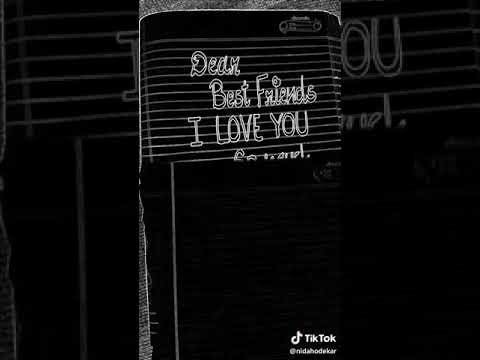 Dear
Best Friends
I LOVE YOU
YOU
TikTok
@nidahodekar